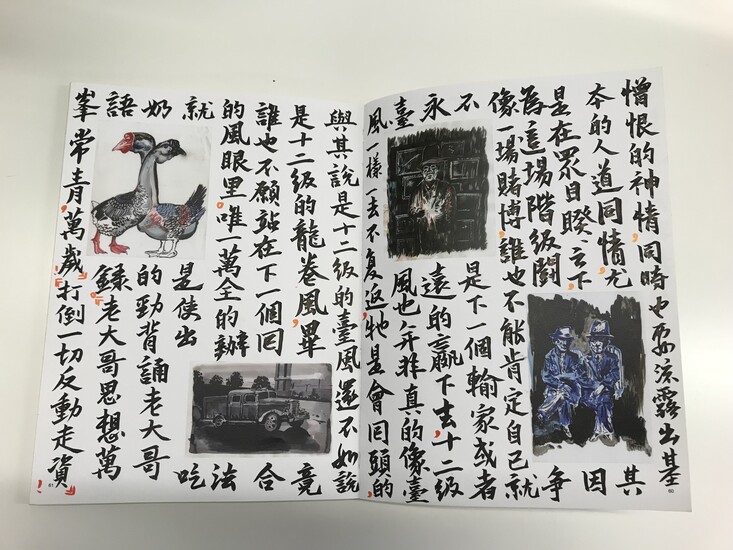 憎恨的神情，同時也要流露出基
本的人道同情，尤其
是在眾目睽〻之下因
為這場階級鬪争
像一場賭博，誰也不能肯定自己就
不是下一個輸家或者
永遠的贏下去，十二級
臺風也并非真的像臺
風一樣一去不復返，牠是會回頭的
60
與其說是十二級的臺風還不如說
是十二級的龍卷風，畢竟
誰也不願站在下一個回合
的風眼里。唯一萬全的辦法
就是使出吃
奶的勁背誦老大哥
語錄『老大哥思想萬
峯常青，萬歲！』『打倒一切反動走資
61